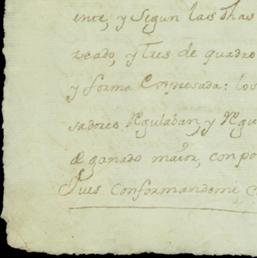 ente, y Segun las dhas
reado, y tres de quadro
y forma Expresada: los
sadores regulaban, y regu
de ganado maior, con po
Jues conformandome, C